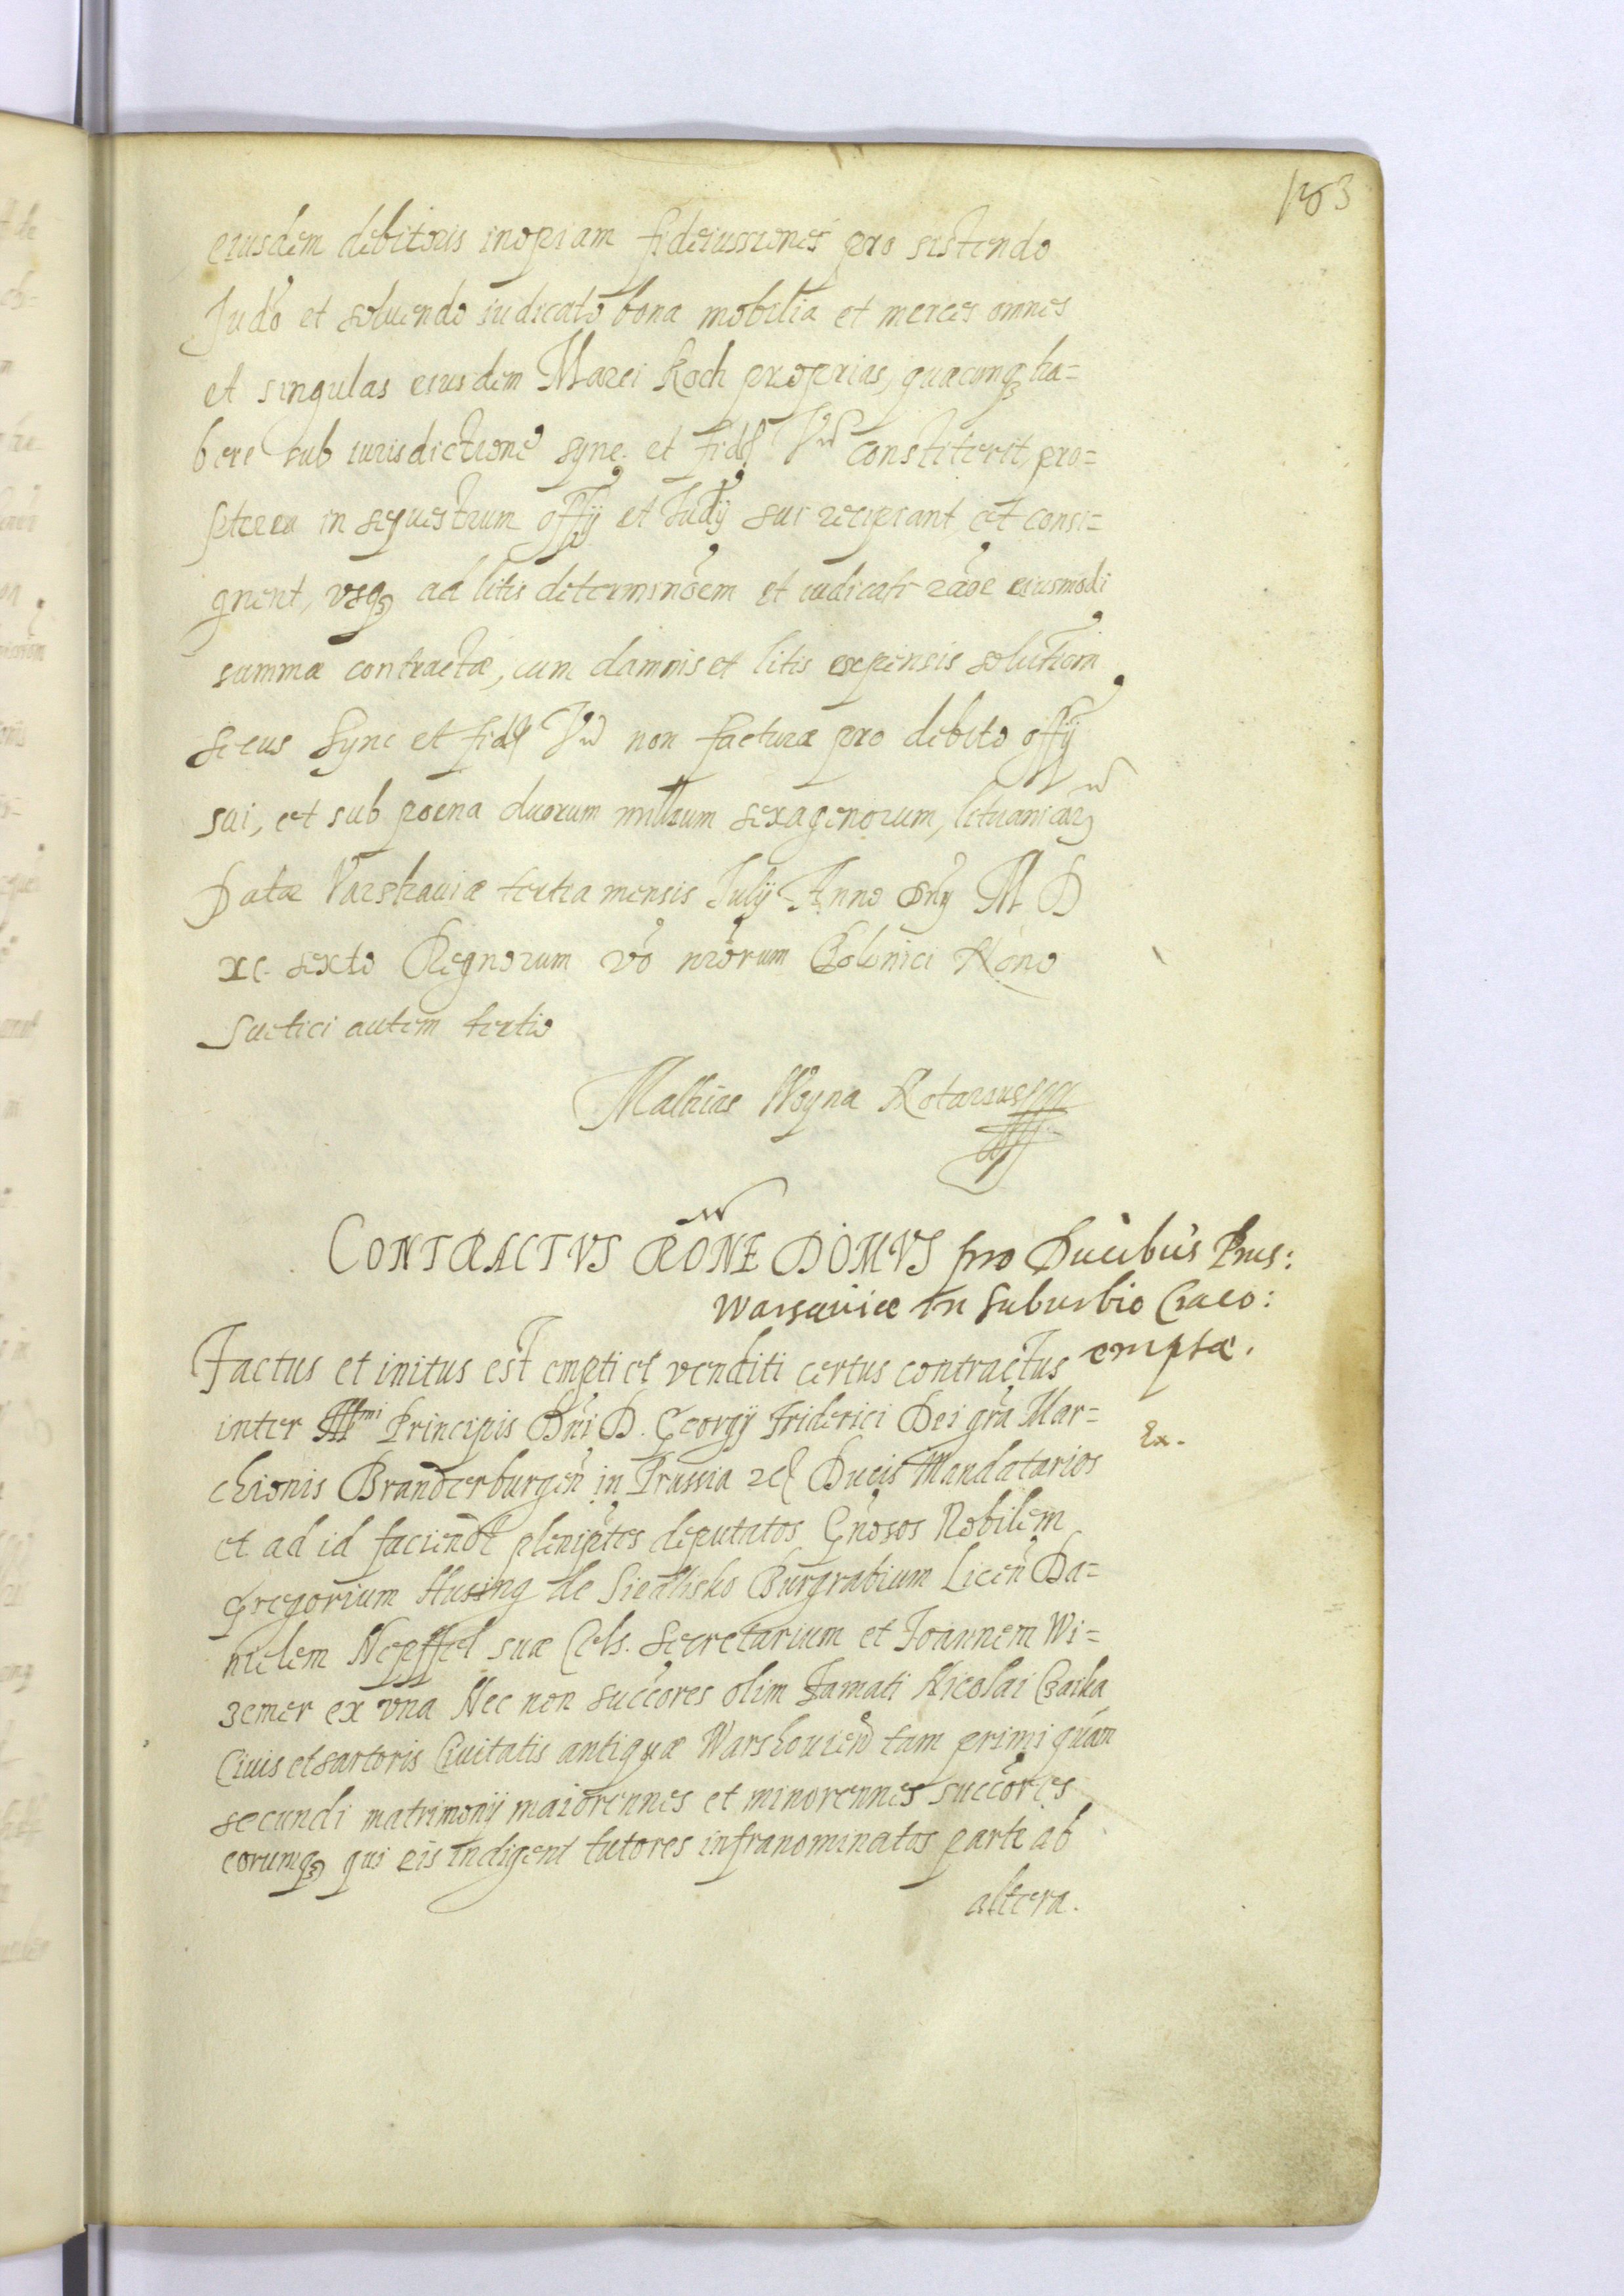 183
eiusdem debitoris inopiam fideiussiones pro sistendo
Judo et soluendo iudicato bona mobilia et merces omnes
et singulas eiusdem Marci Koch proprias, quacunq ha=
bere sub iurisdictione Sync. et fid Vra constiterit, pro=
pterea in sequestrum offij et Judij sui recipiant et consi=
gnent, vsq ad litis determinoem et iudicati raoe eiusmodi
summæ contractæ, cum damnis et litis expensis solutiom
secus Sync et fid Vra non facturæ pro debito offij
sui, et sub poena duorum millium sexagenorum, lituanicar
Datæ Varshauiæ tertia mensis Julij Anno Dny M D
xc sexto Regnorum vo nrorum Polonici Nono
Suetici autem tertio
Mathias Woyna Notarius
CONTRACTVS RONE DOMVS pro Ducibus Prus:
Warsauiæ in suburbio Craco:
emptæ.
Factus et initus est empti et venditi certus contractus
inter Illmi Principis Dni D. Georgij Friderici Dei gra Mar=
Ex.
chionis Brandenburgen in Prussia Ducis Mandatarios
et ad id faciend pleniptes deputatos Gnosos Nobilem
Gregorium Husing de Siedlisko Burgrabium Licen Da=
nielem Nepffel suæ Cels. Secretarium et Joannem Wi=
zemer ex vna Nec non succores olim Famati Nicolai Czaika
Ciuis et sartoris Ciuitatis antiquæ Warshouien tam primi quam
secundi matrimonij maiorennes et minorennes succores
eorumq qui eis indigent tutores infranominatos parte ab
altera.